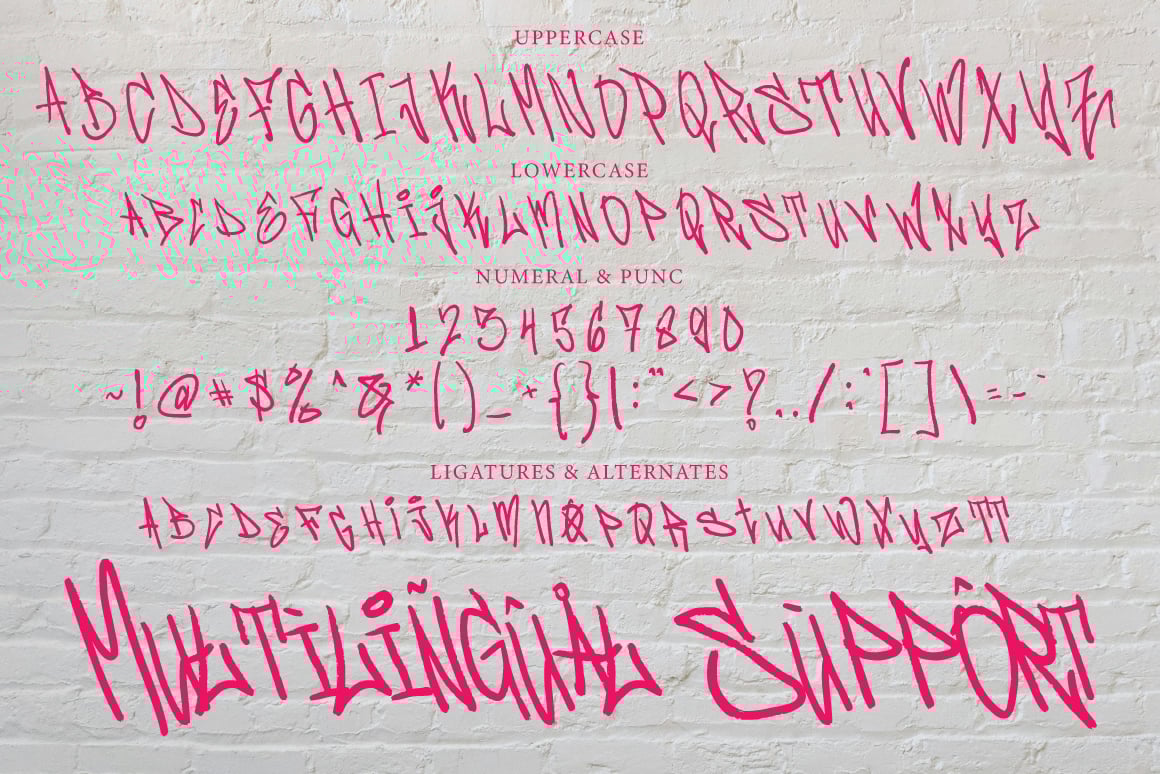 UPPERCASE
ABCDEFGHIJKLMNOPQRSTUVWXYZ
LOWERCASE
ABCDEFGHijKLMNOPQRSTUVWXYZ
NUMERAL & PUNC
1234567890
~!@#$%^&*()_+{}|:"<>?../;'[]\=-`
LIGATURES & ALTERNATES
ABCDEFGHijKLMNOPQRStUVWXYZTT
MULTiLiÑGÛÅL SÙPPÔRT